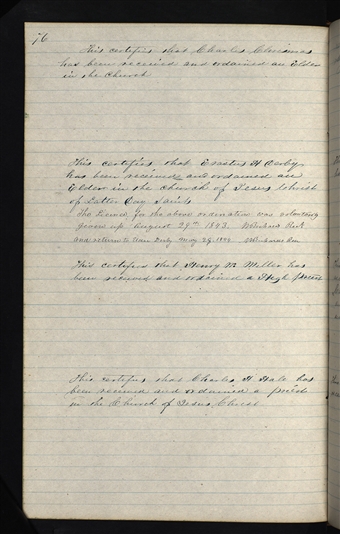 76
This certifies that Charles
has been received and ordained an Elder
in the Church
This certifies that Erastus H Derby
has been received and ordained an
Elder in the Church of Jesus Christ
of Latter Day Saints
The License for the above ordination was
given up August 29th 1843.
and return to May 29. 1844
This certifies that Henry W. Miller has
been received and ordained a High priest
This certifies that Charles H. Hale has
been received and ordained a priest
in the Church of Jesus Christ